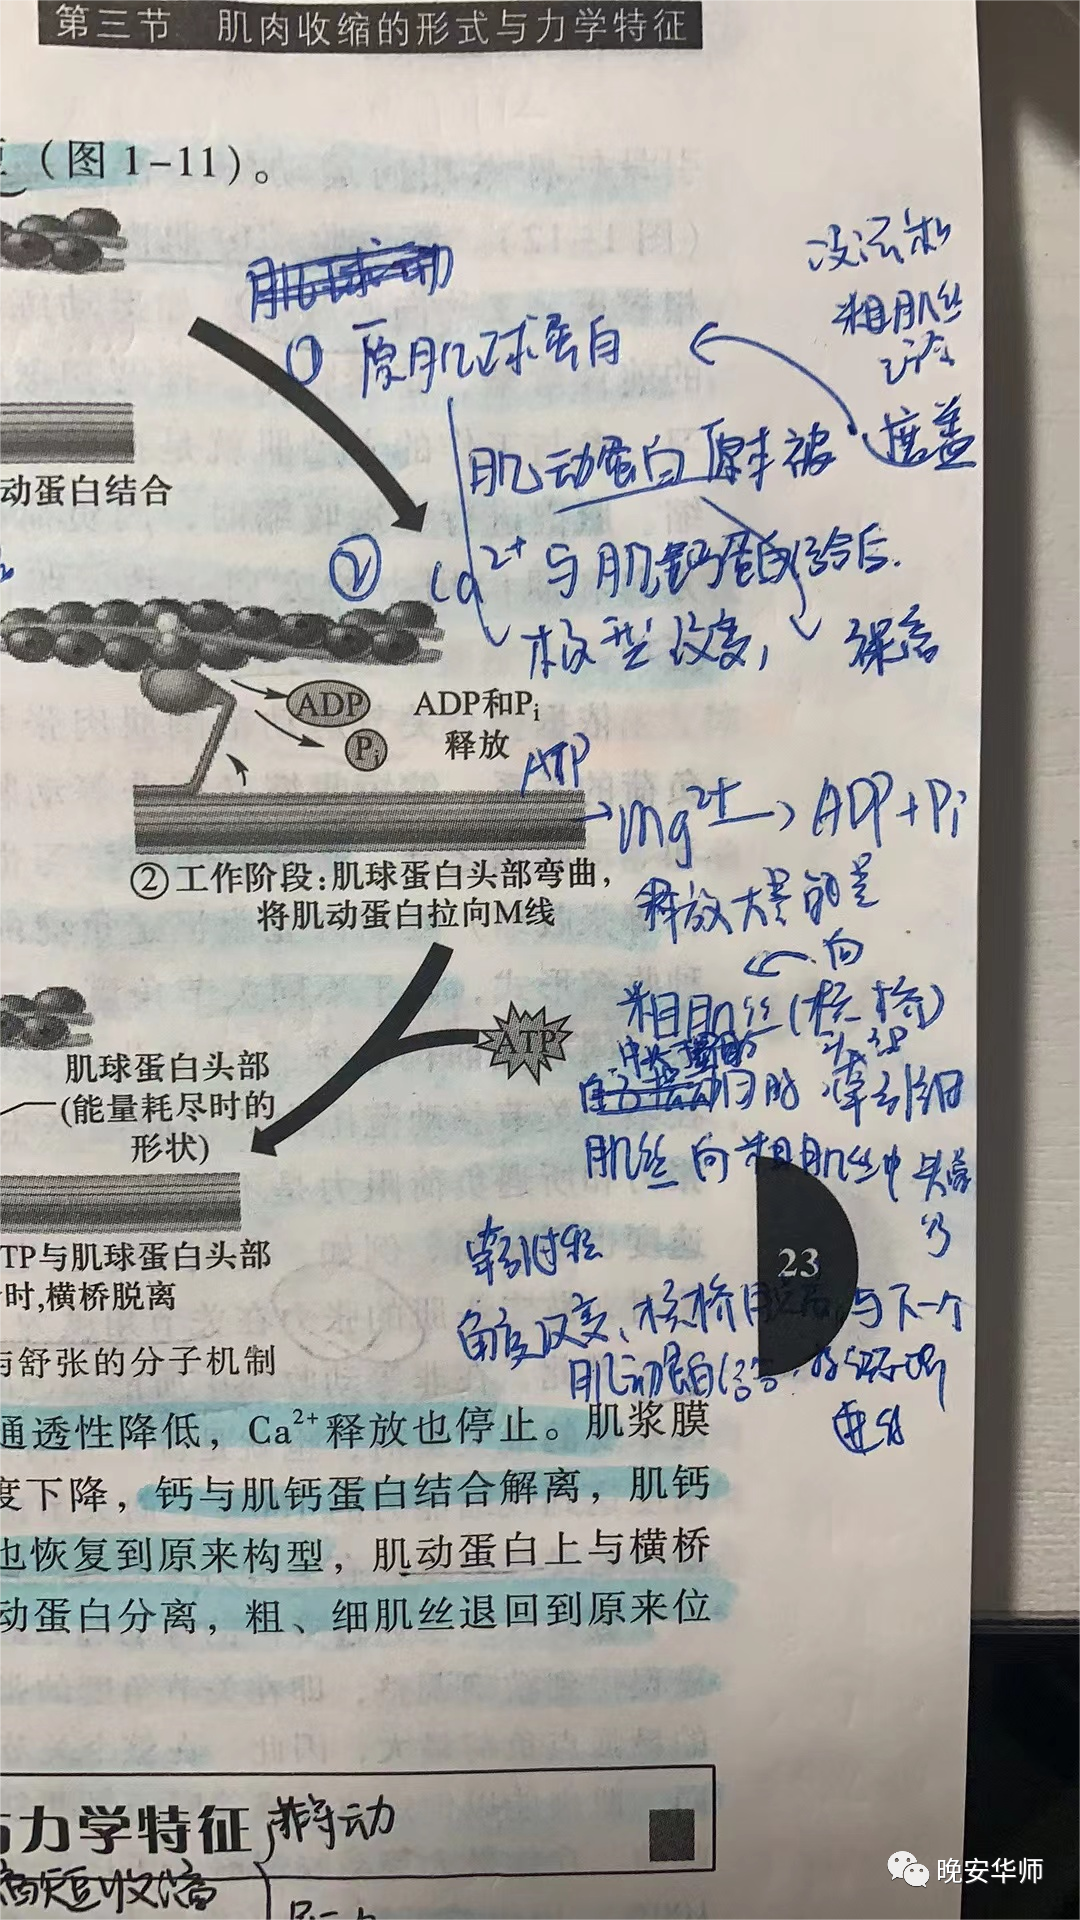 第三节 肌肉收缩的形式与力学特征
(图1-11)。
没法和
粗肌丝
结合
① 原肌球蛋白
肌动蛋白原本被 遮盖
② Ca²⁺与肌钙蛋白结合后.
构型改变, 暴露
动蛋白结合
ADP
Pᵢ
ADP和Pᵢ
释放
ATP
→Mg²⁺→ADP+Pi
②工作阶段:肌球蛋白头部弯曲,
将肌动蛋白拉向M线
释放大量能量
向
粗肌丝(横桥)
牵引细
肌丝向粗肌丝中
ATP
肌球蛋白头部
(能量耗尽时的
形状)
牵引过程
23
角度改变、横桥 与下一个
肌动蛋白结合.
TP与肌球蛋白头部
时,横桥脱离
与舒张的分子机制
通透性降低,Ca²⁺释放也停止。肌浆膜
度下降,钙与肌钙蛋白结合解离,肌钙
也恢复到原来构型,肌动蛋白上与横桥
动蛋白分离,粗、细肌丝退回到原来位
与力学特征
缩短收缩
晚安华师